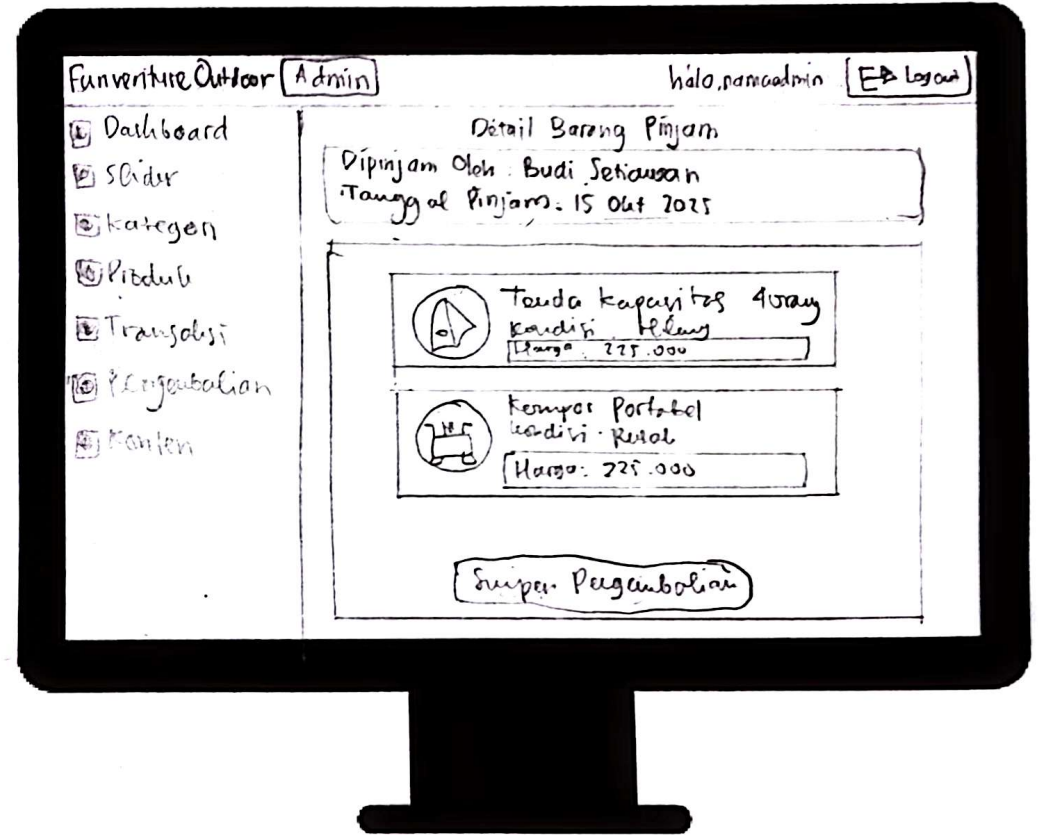 Funventure Outdoor Admin
halo, namaadmin Logout
Dashboard
Slider
Kategori
Produk
Transaksi
Pengembalian
Konten
Detail Barang Pinjam
Dipinjam Oleh : Budi Setiawan
Tanggal Pinjam : 15 Okt 2025
Tenda kapasitas 4 orang
kondisi Hilang
Harga : 225.000
Kompor Portabel
kondisi : Rusak
Harga : 225.000
Simpan Pengembalian